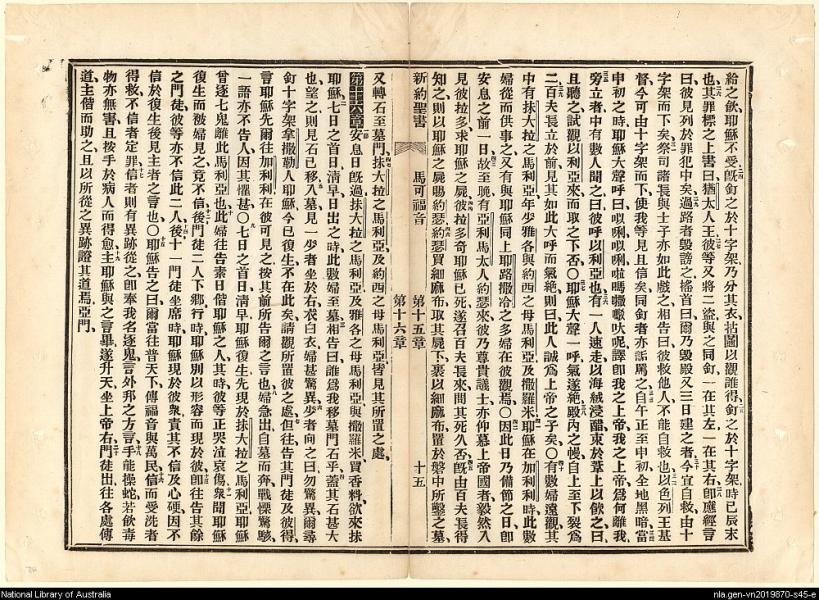 給之飲耶穌不受旣釘之於十字架乃分其衣拈鬮以觀誰得釘之於十字架時已辰末
也其罪標之上書曰猶太人王彼等又將二盜與之同釘一在其左一在其右卽應經言
曰彼見列於罪犯中矣過路者毀謗之搖首曰爾乃毀殿又三日建之者今宜自救由十
字架而下矣祭司諸長與士子亦如此戲之相告曰彼救他人不能自救也以色列王基
督今可由十字架而下使我等見且信矣同釘者亦詬罵之自午正至申初全地黑暗當
申初之時耶穌大聲呼曰㕽唎㕽唎啦嗎嚈嚈吠呢譯卽我之上帝我之上帝爲何離我
旁立者中有數人聞之曰彼呼以利亞也有一人速走以海絨浸醋束於葦上以飲之曰
且聽之試觀以利亞來而取之下否〇耶穌大聲一呼氣遂絕殿內之幔自上至下裂爲
二百夫長立於前見其如此大呼而氣絕則曰此人誠爲上帝之子矣〇有數婦遠觀其
中有抹大拉之馬利亞年少雅各與約西之母馬利亞及撒羅米耶穌在加利利時此數
婦從而供事之又有與耶穌同上耶路撒冷之多婦在彼觀焉〇因此日乃備節之日卽
安息之前一日故至晚有亞利馬太人約瑟來彼乃尊貴議士亦仰慕上帝國者毅然入
見彼拉多求耶穌之屍彼拉多奇耶穌已死遂召百夫長來問其死久否旣由百夫長得
知之則以耶穌之屍賜約瑟約瑟買細麻布取其屍下裹以細麻布置於磐中所鑿之墓
新約聖書 馬可福音 第十五章 第十六章 十五
又轉石至墓門抹大拉之馬利亞及約西之母馬利亞皆見其所置之處
第十六章安息日旣過抹大拉之馬利亞及雅各之母馬利亞與撒羅米買香料欲來抹
耶穌七日之首日淸早日出之時此數婦至墓相告曰誰爲我移墓門石乎蓋其石甚大
也望之則見石已移入墓見一少者坐於右衣白衣婦甚驚異少者向之曰勿驚異爾尋
釘十字架拿撒勒人耶穌今已復生不在此矣請觀所置彼之處但往告其門徒及彼得
言耶穌先爾往加利利在彼可見之按其前所告爾之言也婦急出自墓而奔戰慄驚駭
一語亦不告人因其懼甚〇七日之首日淸早耶穌復生先現於抹大拉之馬利亞耶穌
曾逐七鬼離此馬利亞也此婦往告素日偕耶穌之人其時彼等正哭泣哀傷衆聞耶穌
復生而被婦見之竟不信後門徒二人下鄉行時耶穌別以形容而現於彼卽往告其餘
之門徒彼等亦不信此二人後十一門徒坐席時耶穌現於彼衆責其不信及心硬因不
信於復生後見主者之言也〇耶穌告之曰爾當往普天下傳福音與萬民信而受洗者
得救不信者定罪信者則有異跡從之卽奉我名逐鬼言外邦之方言手能操蛇若飲毒
物亦無害且按手於病人而得愈主耶穌與之言畢遂升天坐上帝右門徒出往各處傳
道主偕而助之且以所從之異跡證其道焉亞門
National Library of Australia
nla.gen-vn2019870-s45-e